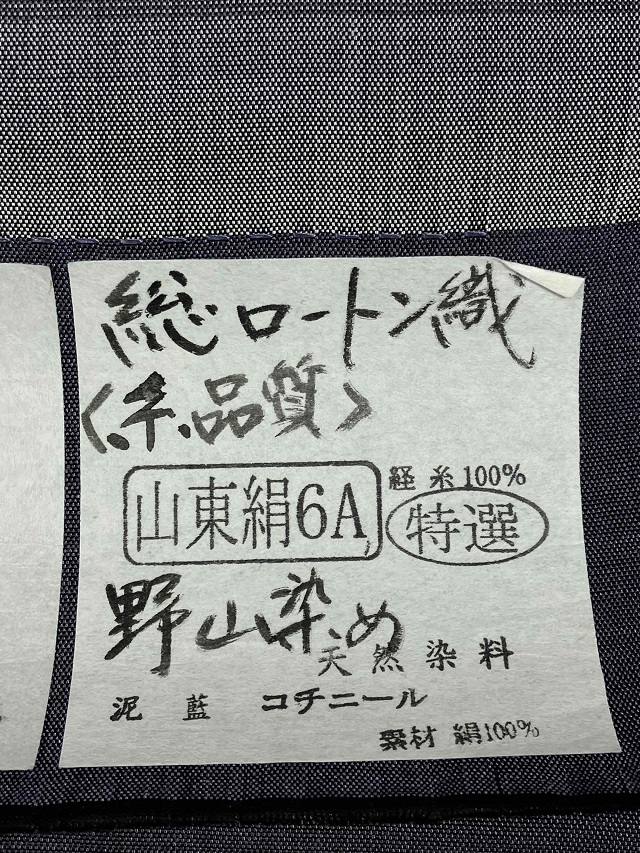 総ロートン織
〈糸品質〉
経糸100%
山東絹6A 特選
野山染め
天然染料
泥 藍 コチニール
素材 絹100%